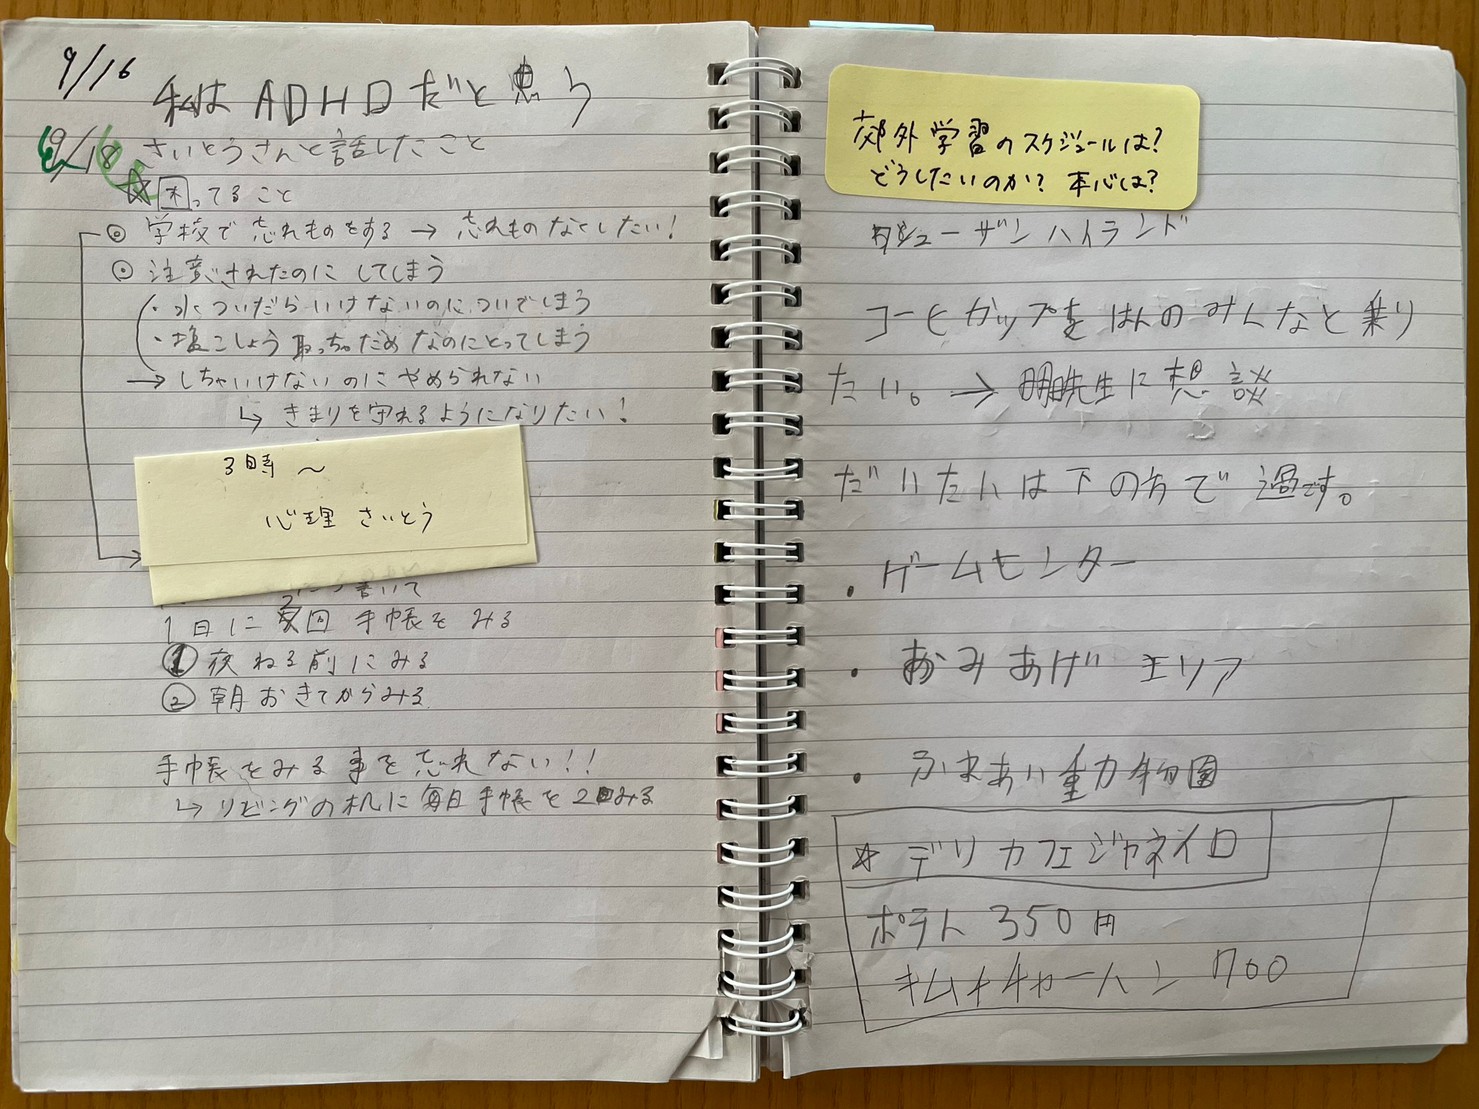 9/16
私はADHDだと思う
9/18 さいとうさんと話したこと
☆困ってること
◎ 学校で忘れものをする → 忘れものなくしたい!
⊙ 注意されたのにしてしまう
・水ついだらいけないのについでしまう
・塩こしょう取っちゃだめなのにとってしまう
→ しちゃいけないのにやめられない
↳ きまりを守れるようになりたい!
3時〜
心理 さいとう
書いて
1日に2回手帳をみる
① 夜ねる前にみる
② 朝おきてからみる
手帳をみる事を忘れない!!
↳ リビングの机に毎日手帳を2回みる
郊外学習のスケジュールは?
どうしたいのか? 本心は?
グシューザンハイランド
コーヒカップをはんのみんなと乗り
たい。→ 先生に想談
だいたいは下の方で過す。
・ゲームセンター
・おみあげエリア
・ふれあい動物園
☆ デリカフェジャネイロ
ポテト 350円
キムチチャーハン 700